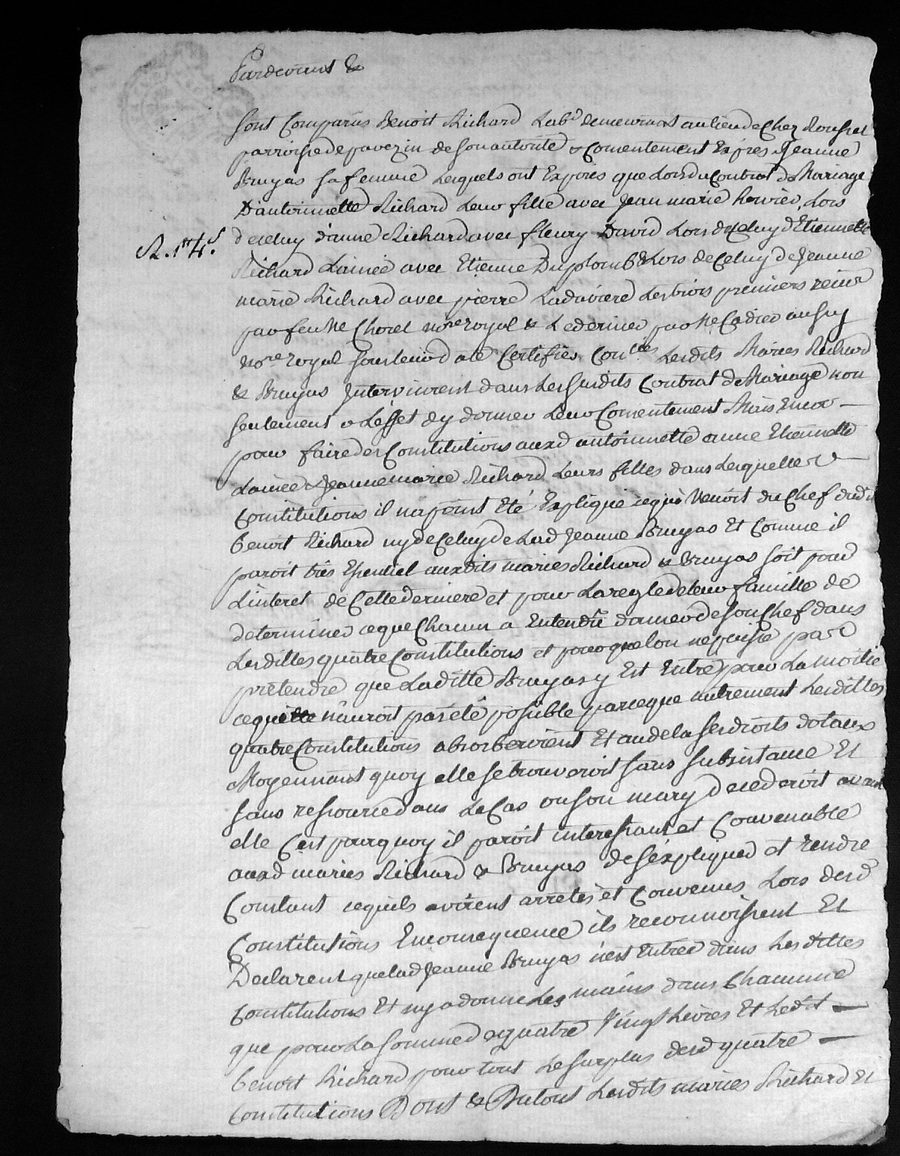 Pardevant &
Sont Comparus Benoit Richard Lab.r demeurant au lieu de Chez Rousset
parroisse de pavezin de son autorité & Consentement Expres Jeanne
Bruyas sa femme lesquels ont Exposé que Lors du Contrat de Mariage
D'antoinette Richard Leur fille avec Jean marie hervier, Lors
de celuy d'anne Richard avec fleury David Lors de Celuy d'Etiennette
R. 1.tt 4.s
Richard Lainée avec Etienne Duplomb & Lors de Celuy de Jeanne
marie Richard avec pierre Ladavière Les trois premiers reçus
par feu Me Choret no.re royal & Le dernier par Me Cadier aussy
no.re royal sous leur date Certifiés Con.lés Lesdits Mariés Richard
& Bruyas Intervinrent dans Les susdits Contrat de Mariage non
seulement a L'effet d'y donner Leur Consentement Mais Encor
pour faire des Constitutions auxd antoinette anne Etiennette
Lainée & Jeanne marie Richard Leurs filles dans Lesquelles
Constitutions il na point Eté Expliqué ce qui Venoit du Chef dud.t
Benoit Richard ny de Celuy de Lad Jeanne Bruyas Et Comme il
paroit très Essentiel auxdits mariés Richard & Bruyas soit pour
L'interet de Cette derniere et pour La regle de leur famille de
determiner ce que Chacun a Entendu donner de son Chef dans
Lesdittes quatre Constitutions et pour que lon ne puisse pas
prétendre que Laditte Bruyas y Est Entrée pour La moitié
ce qui n'auroit pas été possible parce que autrement Lesdittes
quatre Constitutions absorberoient Et au dela ses droits dotaux
Moyennant quoy elle se trouveroit sans subsistance Et
sans ressource dans Le Cas ou son mary decederoit avant
elle C'est pourquoy il paroit interessant et Convenable
auxd mariés Richard & Bruyas de s'expliquer et rendre
Constant ce quils avoient arretés et Convenus Lors desd.
Constitutions En consequence ils reconnoissent Et
Declarent que lad Jeanne Bruyas n'est Entrée dans Lesdittes
Constitutions Et n'y a donné Les mains dans Chacune
que pour La somme de quatre Vingt Livres Et Ledit
Benoit Richard pour tout Le surplus desd quatre
Constitutions Dont & Du tout Lesdits mariés Richard Et